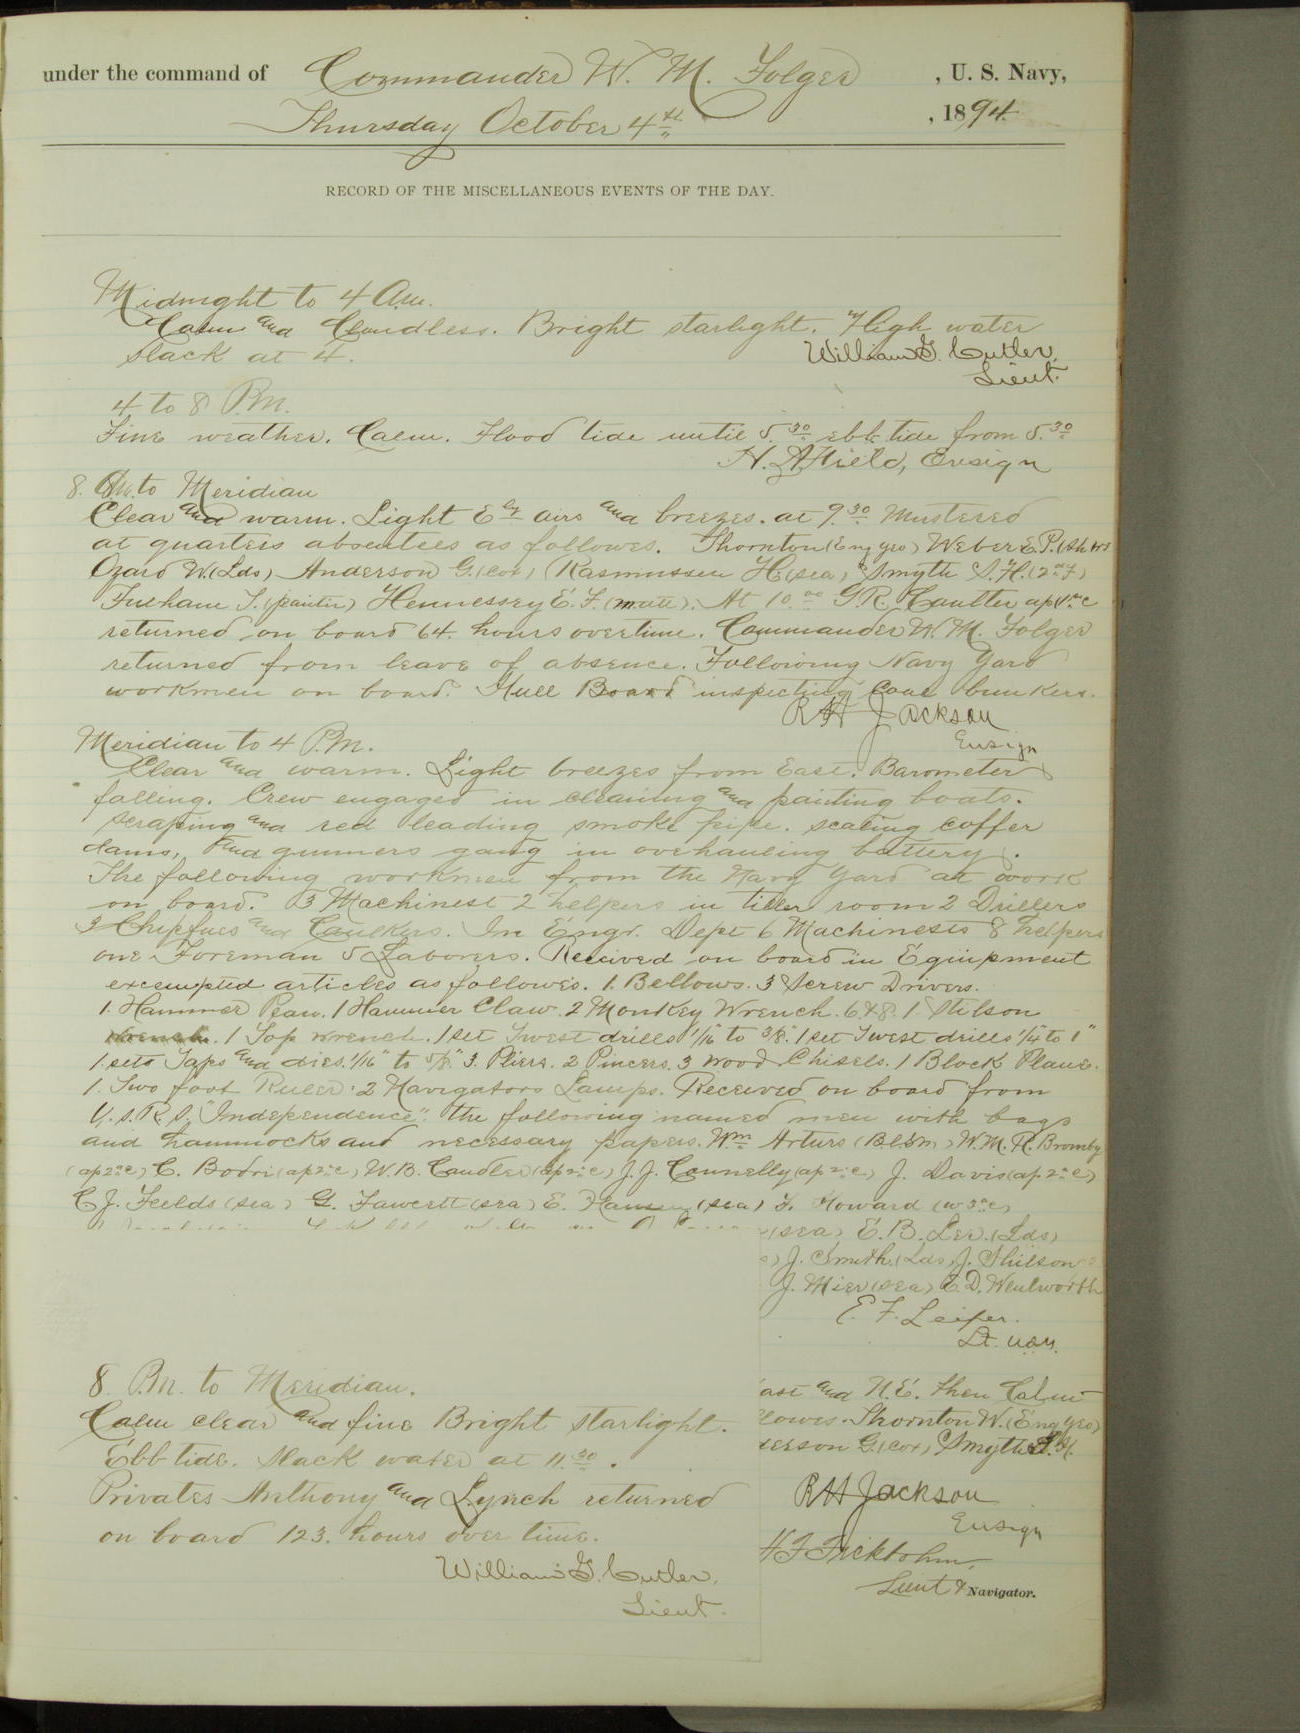 under the command of Commander W. M. Folger, U. S. Navy,
Thursday October 4th, 1894
RECORD OF THE MISCELLANEOUS EVENTS OF THE DAY.
Midnight to 4 Am.
Calm and Cloudless. Bright starlight. High water
slack at 4.
William G. Cutler,
Lieut.
4 to 8 P.M.
Fine weather. Calm. Flood tide until 5.30 ebb tide from 5.30
H. A. Field, Ensign
8. Am. to Meridian
Clear and warm. Light Ely airs and breezes. at 9.30 Mustered
at quarters absentees as followes. Thornton (Eng yeo) Weber E. P. (
Ozard W. (Lds) Anderson G. (cox) Rasmussen H. (sea) Smyth S. H. (2nd f)
Fulham J. (painter) Hennessey E. F. (matt). At 10.00 G. R. Caulter ap 1st c
returned on board 64. hours overtime. Commander W. M. Folger
returned from leave of absence. Following Navy Yard
workmen on board. Hull Board inspecting coal bunkers.
R H Jackson
Ensign
Meridian to 4 P.M.
Clear and warm. Light breezes from East. Barometer
falling. Crew engaged in cleaning and painting boats.
scraping and red leading smoke pipe. scaling coffer
dams, and gunners gang in overhauling battery.
The following workmen from the Navy Yard at work
on board. 3 Machinest 2 helpers in tiller room 2 Drillers
3 Chippers and Caulkers. In Engr. Dept 6 Machinests 8 helpers
one Foreman 5 Laborers. Received on board in Equipment
articles as followes. 1. Bellows. 3 Screw Drivers.
1. Hammer Pean. 1 Hammer Claw. 2 Monkey Wrench. 6 & 8. 1 Stilson
wrench. 1 Tap wrench. 1 set Twest drills 1/16" to 3/8". 1 set Twest drills 1/4" to 1"
1. sets Taps and dies. 1/16" to 5/8" 3. Pliers. 2 Pincers. 3 wood Chisels. 1 Block Plane.
1. Two foot Ruler. 2 Navigators Lamps. Received on board from
U. S. R. S. "Independence". the following named men with bags
and hammocks and necessary papers. Wm Arturs (Blsm) W. M. R. Bromby
(ap 2nd c) C. Bodri (ap 2nd c) W. B. Caudler (ap 2nd c) J. J. Connelly (ap 2nd c) J. Davis (ap 2nd c)
C. J. Feelds (sea) G. Fawcett (sea) E. Hansen (sea) F. Howard
(sea) E. B. Lee. (Lds)
J. Smith (Lds) J. Shilson
J. Mier (sea) E. D. Wentworth
E. F. Leiper.
Lt. USN.
8. P.M. to Meridian.
Calm clear and fine Bright starlight.
Ebb tide. Slack water at 11.30.
Privates Anthony and Lynch returned
on board 123. hours over time.
William G. Cutler,
Lieut.
ast and N.E. then Calm
lowes. Thornton W. (Eng yeo)
erson G. (cox) Smyth S. H.
R H Jackson
Ensign
Lieut & Navigator.